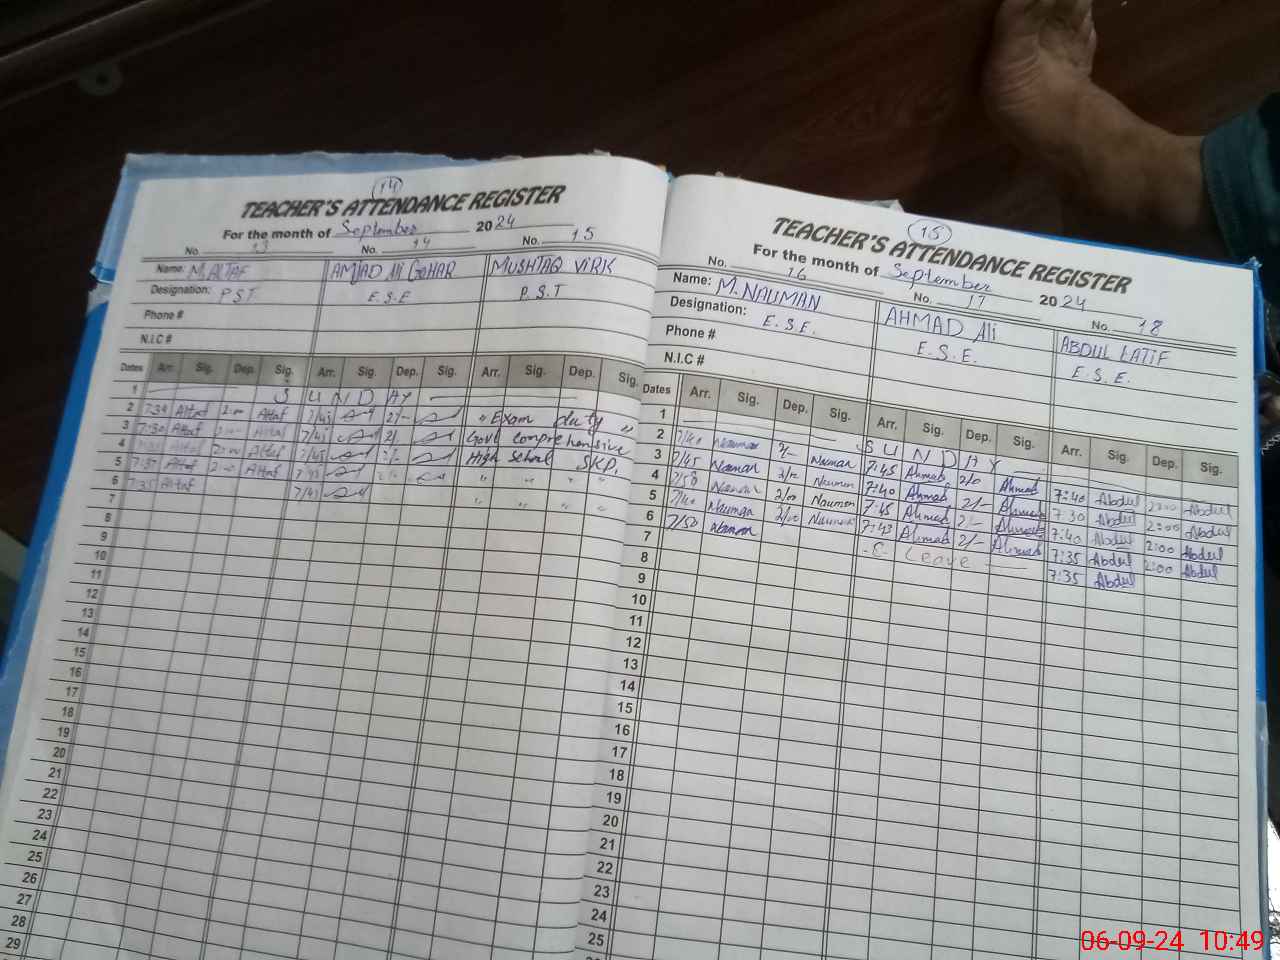 14
TEACHER'S ATTENDANCE REGISTER
For the month of September 2024
No. 13 No. 14 No. 15
Name: M. ALTAF AMJAD Ali GOHAR MUSHTAQ VIRK
Designation: P.S.T E.S.E P.S.T
Phone #
N.I.C #
Dates Arr. Sig. Dep. Sig. Arr. Sig. Dep. Sig. Arr. Sig. Dep. Sig.
1 SUNDAY
2 Altaf 2:00 Altaf 7/45 2/- " Exam duty "
3 7:30 Altaf Altaf 2/- Govt comprehensive
4 2:00 Altaf 7/45 2/- High School SKP.
5 7:37 Altaf 2:00 Altaf " " " "
6 7:35 Altaf " " " "
7
8
9
10
11
12
13
14
15
16
17
18
19
20
21
22
23
24
25
26
27
28
29
15
TEACHER'S ATTENDANCE REGISTER
For the month of September 2024
No. 16 No. 17 No. 18
Name: M. NAUMAN AHMAD Ali ABDUL LATIF
Designation: E.S.E. E.S.E. E.S.E.
Phone #
N.I.C #
Dates Arr. Sig. Dep. Sig. Arr. Sig. Dep. Sig. Arr. Sig. Dep. Sig.
1 SUNDAY
2 7/40 Nauman 2/- Nauman 7:45 Ahmad 2/0 Ahmad 7:40 Abdul 2:00 Abdul
3 7/45 Nauman Nauman 7:40 Ahmad 2/- Ahmad 7:30 Abdul 2:00 Abdul
4 7/50 Nauman 2/00 Nauman 7:45 Ahmad 2/- Ahmad 7:40 Abdul 2:00 Abdul
5 7/40 Nauman 2/00 Nauman 7:43 Ahmad 2/- Ahmad 7:35 Abdul 2:00 Abdul
6 7/50 Nauman Leave 7:35 Abdul
7
8
9
10
11
12
13
14
15
16
17
18
19
20
21
22
23
24
25
06-09-24 10:49